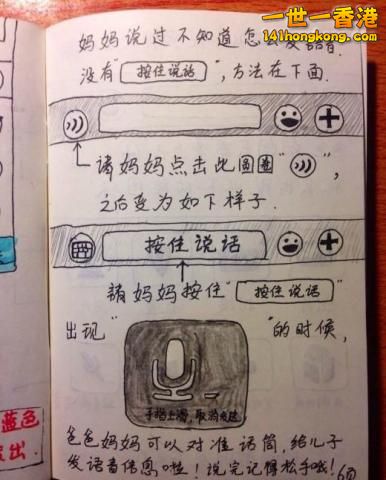 一世一香港
141hongkong.com
妈妈说过不知道怎么发语音.
没有"按住说话",方法在下面.
请妈妈点击此圆圈" ",
之后变为如下样子.
按住说话
请妈妈按住"按住说话"
出现" "的时候,
手指上滑,取消发送
爸爸妈妈可以对准话筒,给儿子
发语音信息啦!说完记得松手哦!
蓝色
出.